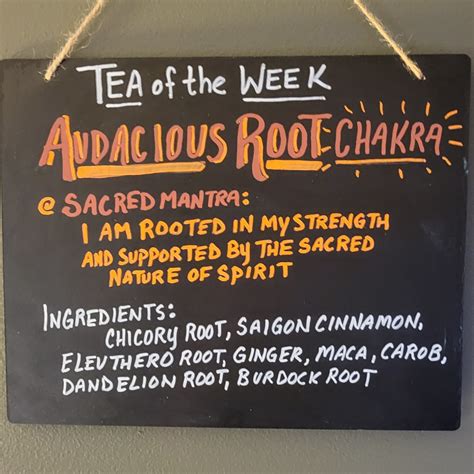 TEA of the WEEK
AUDACIOUS ROOT CHAKRA
@ SACRED MANTRA:
I AM ROOTED IN MY STRENGTH
AND SUPPORTED BY THE SACRED
NATURE OF SPIRIT
INGREDIENTS:
CHICORY ROOT, SAIGON CINNAMON,
ELEUTHERO ROOT, GINGER, MACA, CAROB,
DANDELION ROOT, BURDOCK ROOT